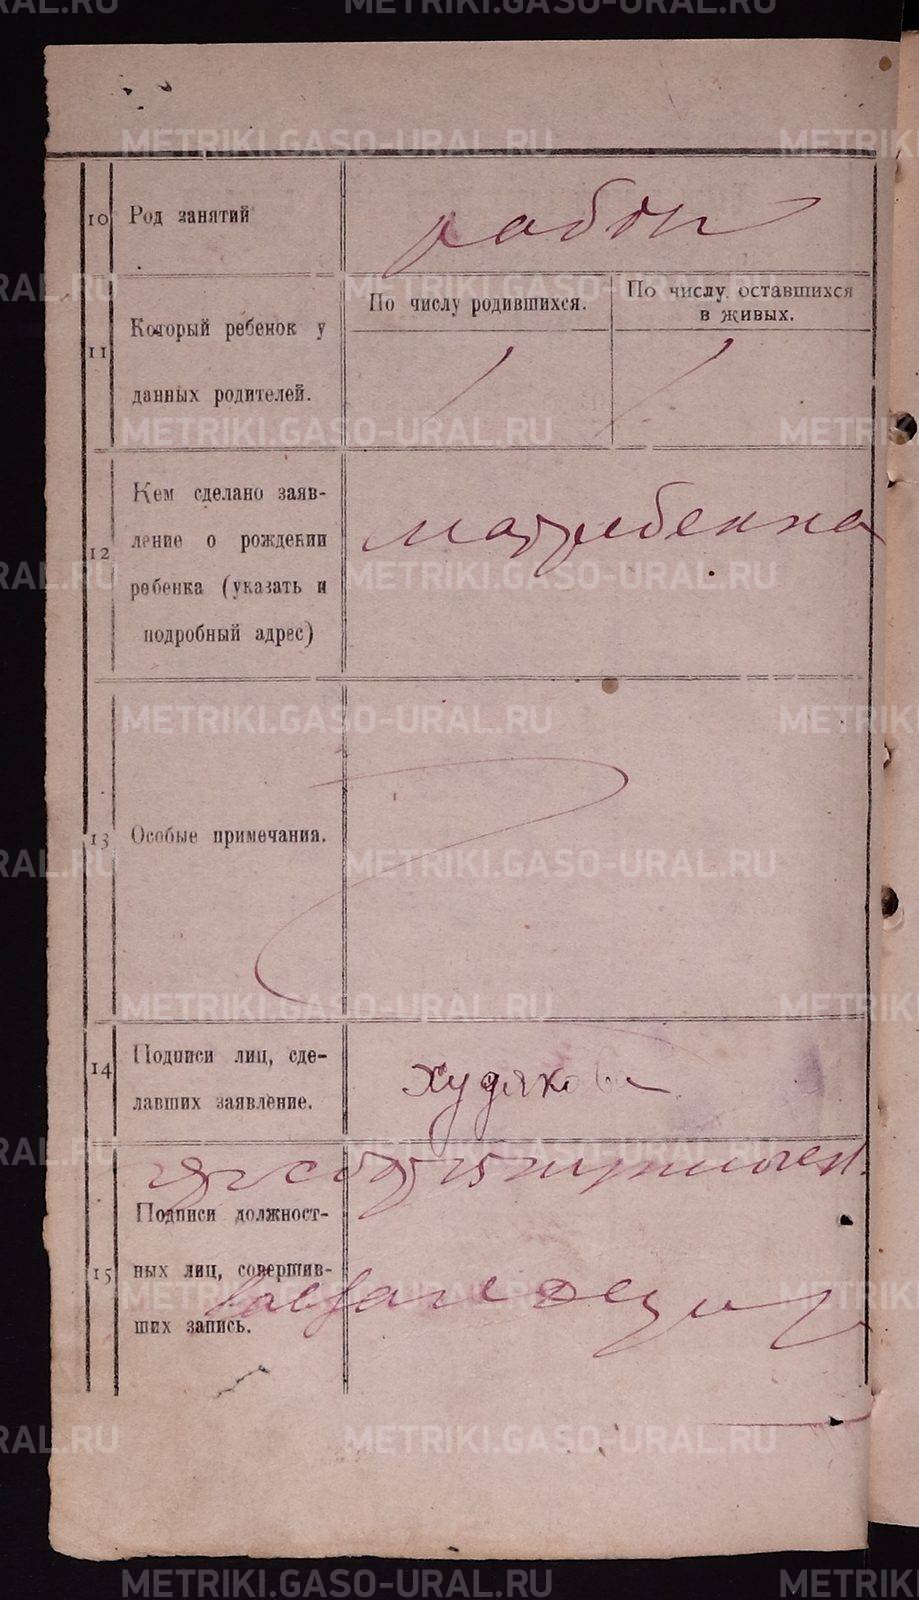 10 Род занятий
рабоч
11 Который ребенок у
данных родителей.
По числу родившихся.
По числу оставшихся
в живых.
1 1
12 Кем сделано заяв-
ление о рождении
ребенка (указать и
подробный адрес)
мат ребенка
13 Особые примечания.
14 Подписи лиц, сде-
лавших заявление.
Худякова
15 Подписи должност-
ных лиц, совершив-
ших запись.
METRIKI.GASO-URAL.RU